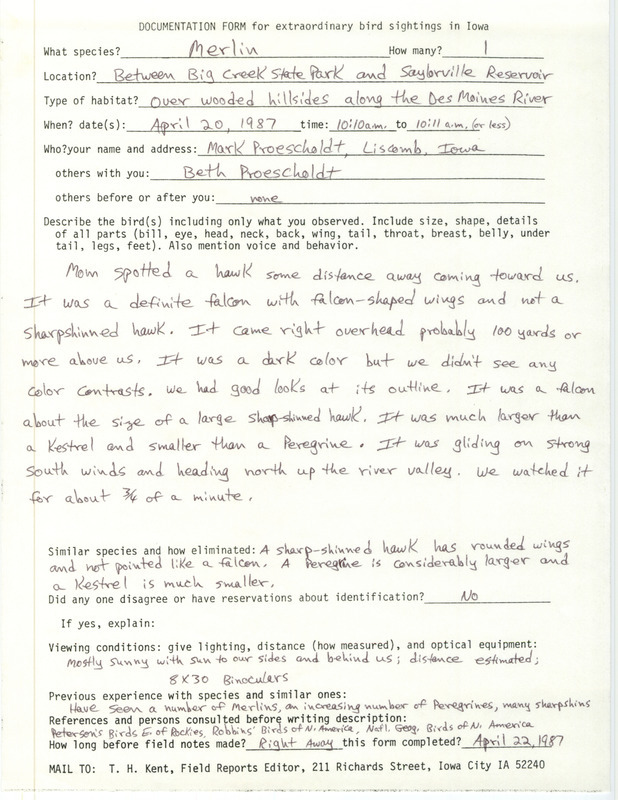 DOCUMENTATION FORM for extraordinary bird sightings in Iowa
What species? Merlin How many? 1
Location? Between Big Creek State Park and Saylorville Reservoir
Type of habitat? Over wooded hillsides along the Des Moines River
When? date(s): April 20, 1987 time: 10:10 a.m. to 10:11 a.m. (or less)
Who?your name and address: Mark Proescholdt, Liscomb, Iowa
others with you: Beth Proescholdt
others before or after you: none
Describe the bird(s) including only what you observed. Include size, shape, details
of all parts (bill, eye, head, neck, back, wing, tail, throat, breast, belly, under
tail, legs, feet). Also mention voice and behavior.
Mom spotted a hawk some distance away coming toward us.
It was a definite falcon with falcon-shaped wings and not a
sharpshinned hawk. It came right overhead probably 100 yards or
more above us. It was a dark color but we didn't see any
color contrasts. We had good looks at its outline. It was a falcon
about the size of a large sharp-shinned hawk. It was much larger than
a Kestrel and smaller than a Peregrine. It was gliding on strong
South winds and heading north up the river valley. We watched it
for about 3/4 of a minute.
Similar species and how eliminated: A sharp-shinned hawk has rounded wings
and not pointed like a falcon. A Peregrine is considerably larger and
a Kestrel is much smaller.
Did any one disagree or have reservations about identification? No
If yes, explain:
Viewing conditions: give lighting, distance (how measured), and optical equipment:
Mostly sunny with sun to our sides and behind us; distance estimated;
8X30 Binoculars
Previous experience with species and similar ones:
Have seen a number of Merlins, an increasing number of Peregrines, many sharpshins
References and persons consulted before writing description:
Peterson's Birds E. of Rockies, Robbins' Birds of N. America, Natl. Geog. Birds of N. America
How long before field notes made? Right Away this form completed? April 22, 1987
MAIL TO: T. H. Kent, Field Reports Editor, 211 Richards Street, Iowa City IA 52240